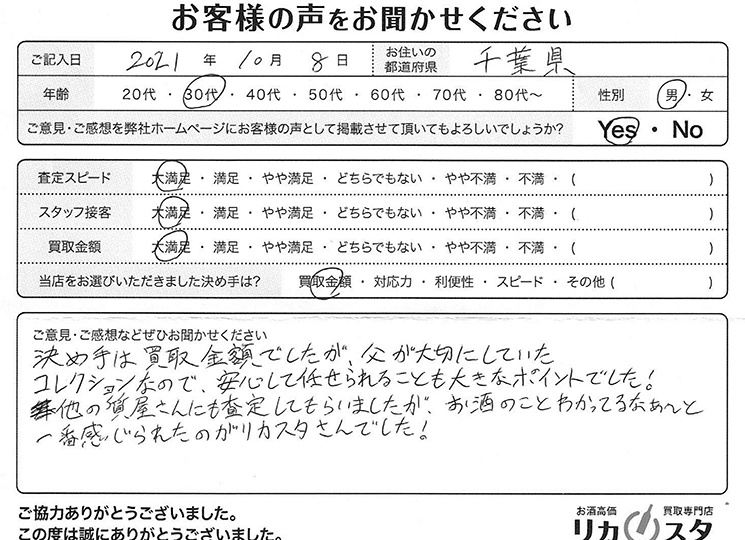 お客様の声をお聞かせください
ご記入日 2021 年 10 月 8 日 お住いの都道府県 千葉県
年齢 20代 ・ 30代 ・ 40代 ・ 50代 ・ 60代 ・ 70代 ・ 80代〜 性別 男 ・ 女
ご意見・ご感想を弊社ホームページにお客様の声として掲載させて頂いてもよろしいでしょうか? Yes ・ No
査定スピード 大満足 ・ 満足 ・ やや満足 ・ どちらでもない ・ やや不満 ・ 不満 ・ ( )
スタッフ接客 大満足 ・ 満足 ・ やや満足 ・ どちらでもない ・ やや不満 ・ 不満 ・ ( )
買取金額 大満足 ・ 満足 ・ やや満足 ・ どちらでもない ・ やや不満 ・ 不満 ・ ( )
当店をお選びいただきました決め手は? 買取金額 ・ 対応力 ・ 利便性 ・ スピード ・ その他 ( )
ご意見・ご感想などぜひお聞かせください
決め手は買取金額でしたが、父が大切にしていた
コレクションなので、安心して任せられることも大きなポイントでした!
他の質屋さんにも査定してもらいましたが、お酒のことわかってるなぁ〜と
一番感じられたのがリカスタさんでした!
ご協力ありがとうございました。
この度は誠にありがとうございました。
お酒高価 買取専門店
リカスタ